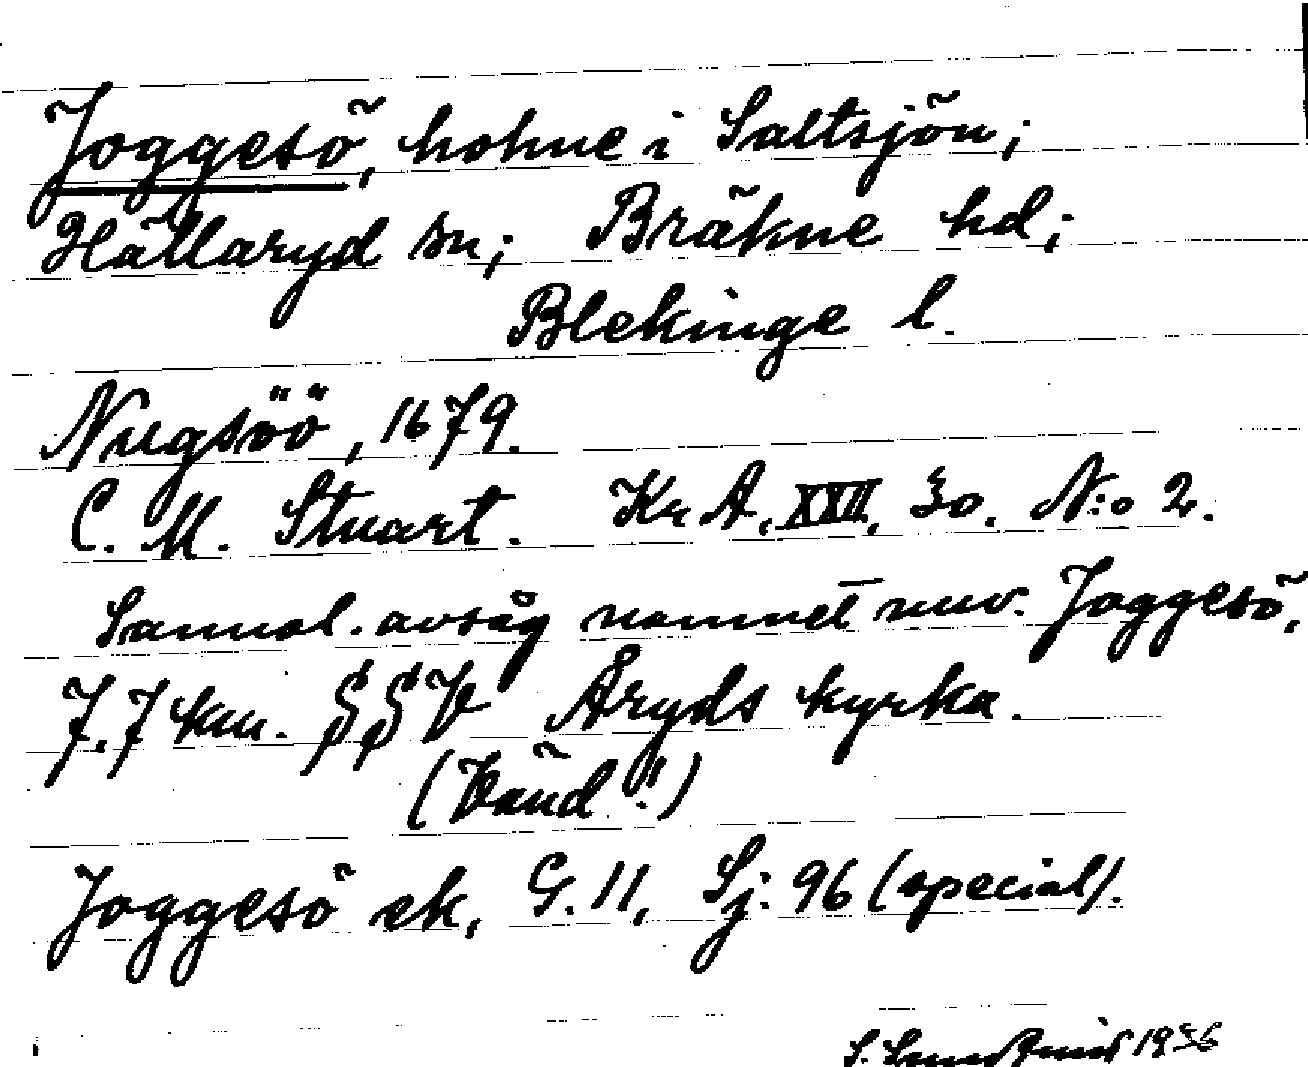 Joggesö, holme i Saltsjön;
Hällaryd sn; Bräkne hd;
Blekinge l.
Nugsöö, 1679.
C. M. Stuart. Kr A, XXII, 30. N:o 2.
Sannol. avsåg namnet nuv. Joggesö,
7,7 km. SSV Åryds kyrka.
(Vänd!)
Joggesö ek, G. 11, Sj: 96 (special).
S. 1936